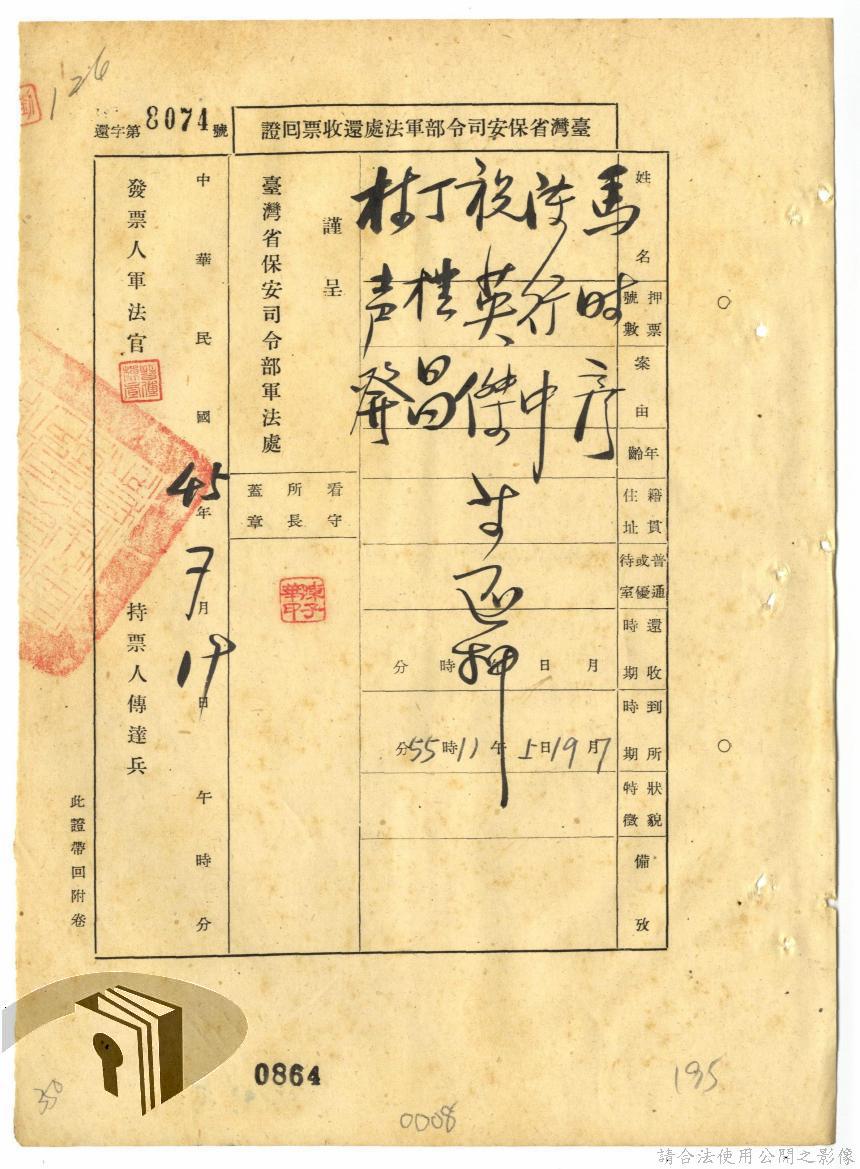 126
還字第8074號
臺灣省保安司令部軍法處還收票回證
姓名
押票號數
案由
年齡
籍貫住址
普通或優待室
還收時期
到所時期
狀貌特徵
備攷
馬時彥
陳行中
祝英傑
丁樸昌
林声發
等還押
月 日 時 分
7月19日上午11時55分
謹呈
臺灣省保安司令部軍法處
看守所所長蓋章
中華民國45年7月19日午時分
發票人軍法官
持票人傳達兵
此證帶回附卷
0864
0008
195
350
請合法使用公開之影像